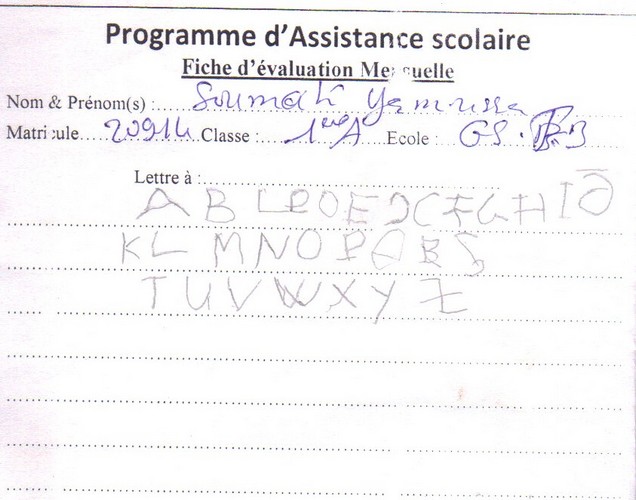 Programme d'Assistance scolaire
Fiche d'évaluation Mensuelle
Nom & Prénom(s) :
Matricule 20914 Classe : 1ère A Ecole : GS.
Lettre à :
A B L E O E D C F G H I
K L M N O P Q R S
T U V W X Y Z